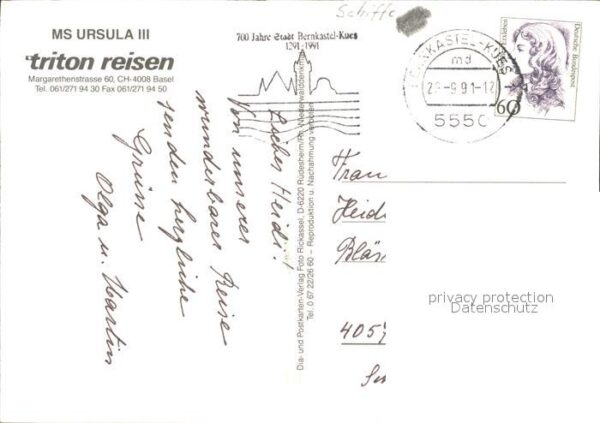 Schiffe
MS URSULA III
triton reisen
Margarethenstrasse 60, CH-4008 Basel
Tel. 061/271 94 30 Fax 061/271 94 50
700 Jahre Stadt Bernkastel-Kues
1291-1991
BERNKASTEL-KUES
md
-9.91-12
5550
Deutsche Bundespost
60
Liebes Heidi!
Von unserer
wunderbaren Reise
senden herzliche
Grüsse
Olga u. Martin
Dia- und Postkarten-Verlag Foto Rickassel, D-6220 Rüdesheim/Rh.-Niederwalddenkmal
Tel. 0 67 22/26 60 – Reproduktion u. Nachahmung verboten
Frau
Heid
Bläs
405
privacy protection
Datenschutz